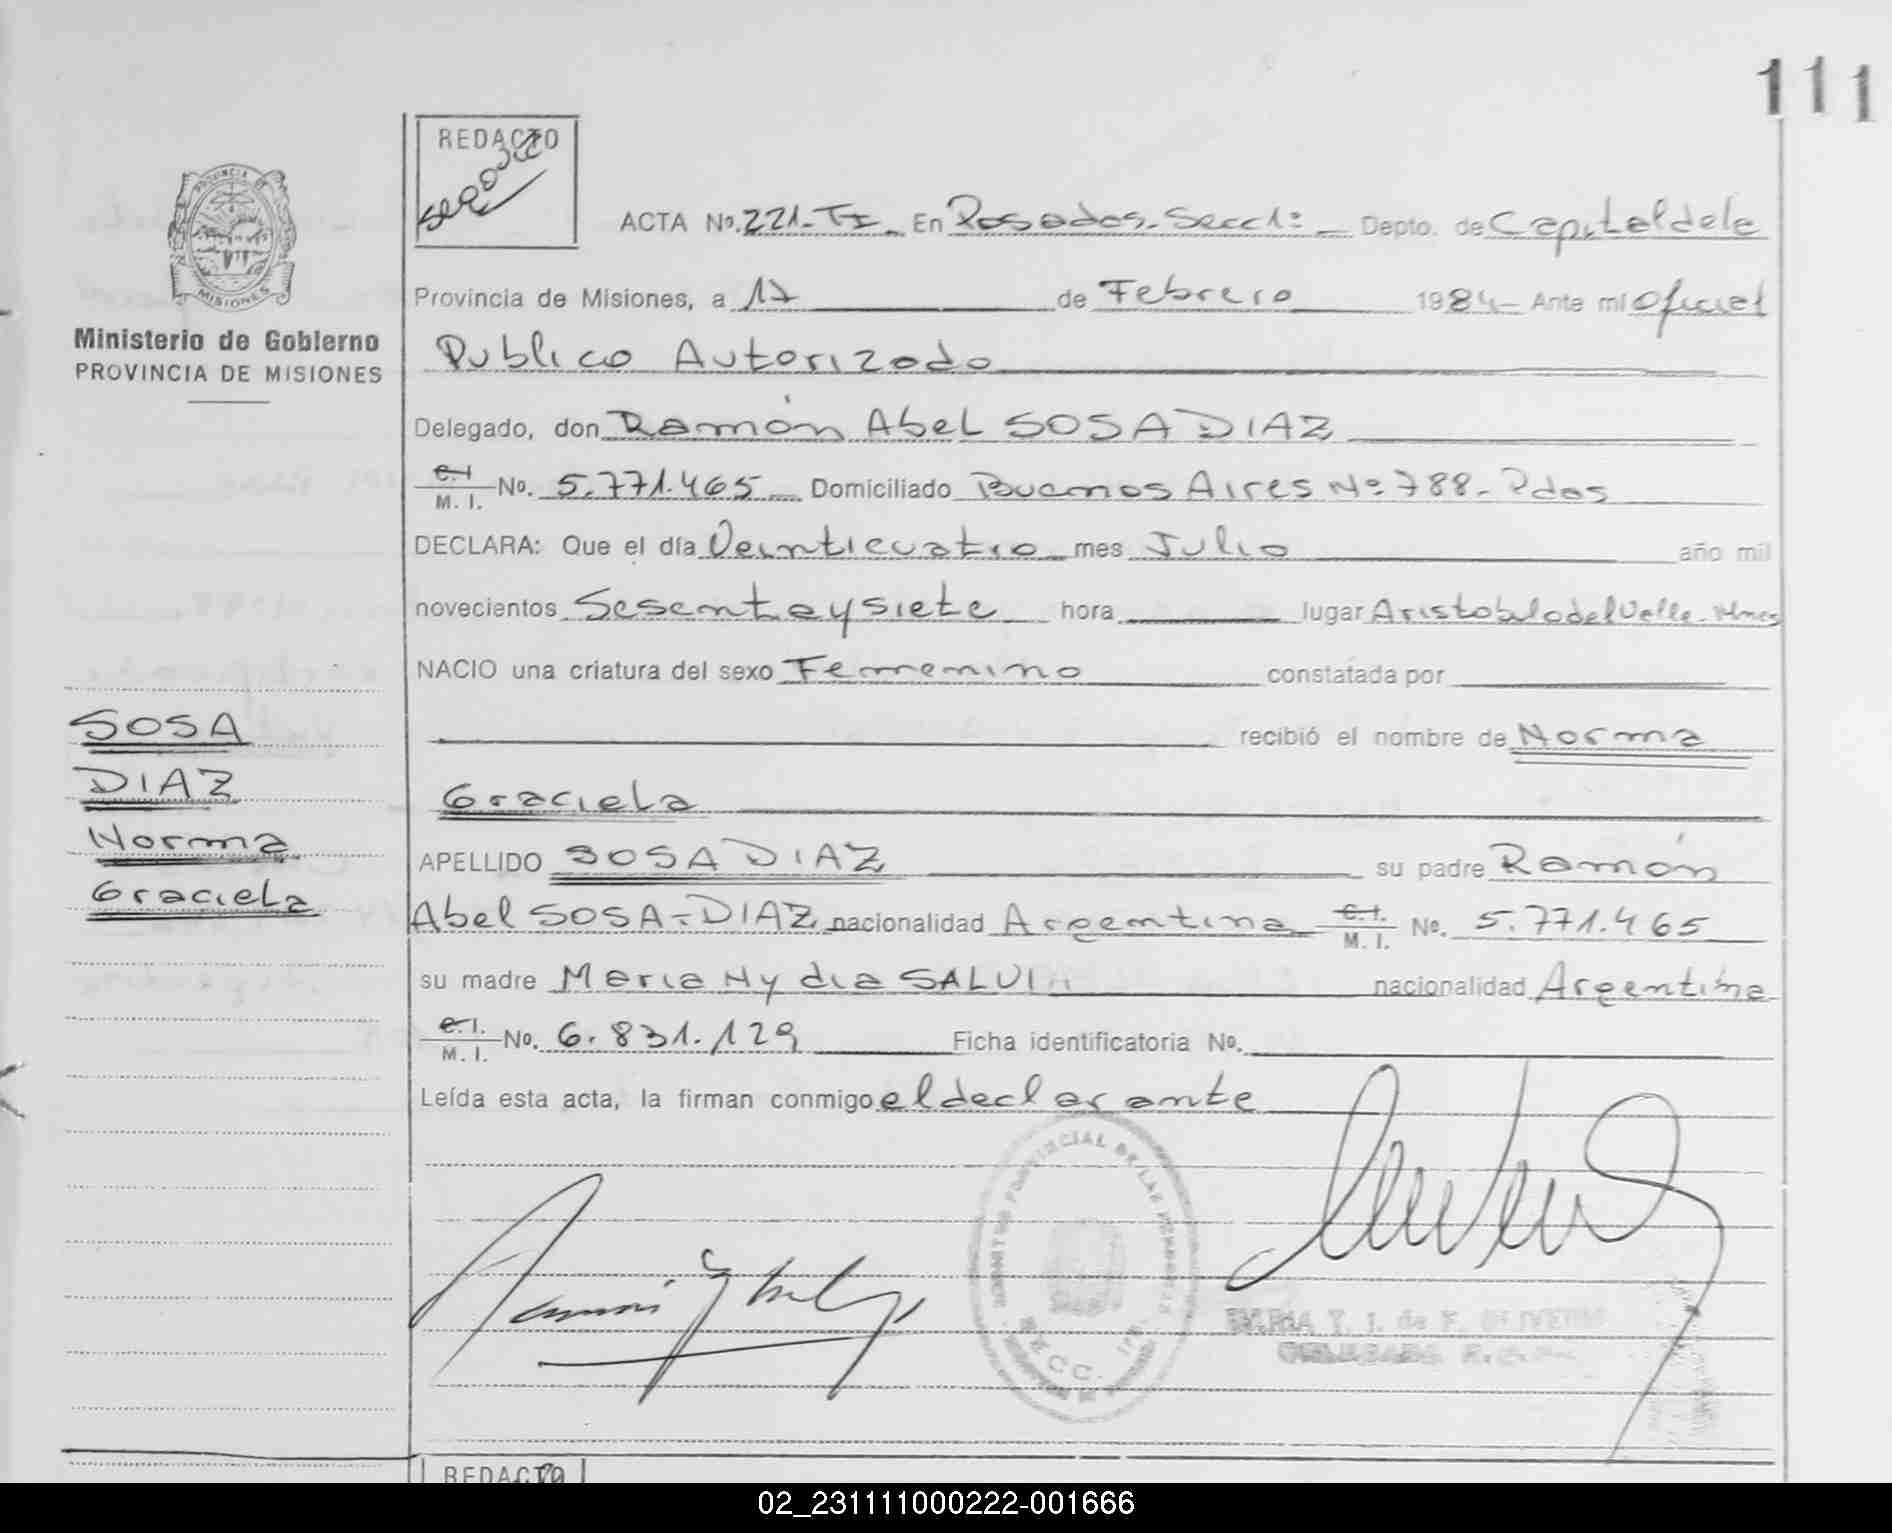 111
REDACTO
ACTA No. 221-TI En Posadas-Secc1: Depto. de Capital de la
Provincia de Misiones, a 17 de Febrero 1984 Ante mi Oficial
PROVINCIA DE MISIONES
Ministerio de Gobierno
PROVINCIA DE MISIONES
Publico Autorizado
Delegado, don Ramón Abel SOSA DIAZ
C.I. M. I. No. 5.771.465 Domiciliado Buenos Aires Nº 788- Pdas
DECLARA: Que el día Veinticuatro mes Julio año mil
novecientos Sesenta y siete hora lugar Aristobulo del Valle-Mnes
NACIO una criatura del sexo Femenino constatada por
recibió el nombre de Norma
Graciela
SOSA
DIAZ
Norma
Graciela
APELLIDO SOSA DIAZ su padre Ramón
Abel SOSA-DIAZ nacionalidad Argentina C.I. M. I. No. 5.771.465
su madre Maria Nydia SALVI nacionalidad Argentina
C.I. M. I. No. 6.831.129 Ficha identificatoria No.
Leída esta acta, la firman conmigo el declarante
PROVINCIAL DE LAS PERSONAS
SECC. 1ra.
REDACTO
02_231111000222-001666